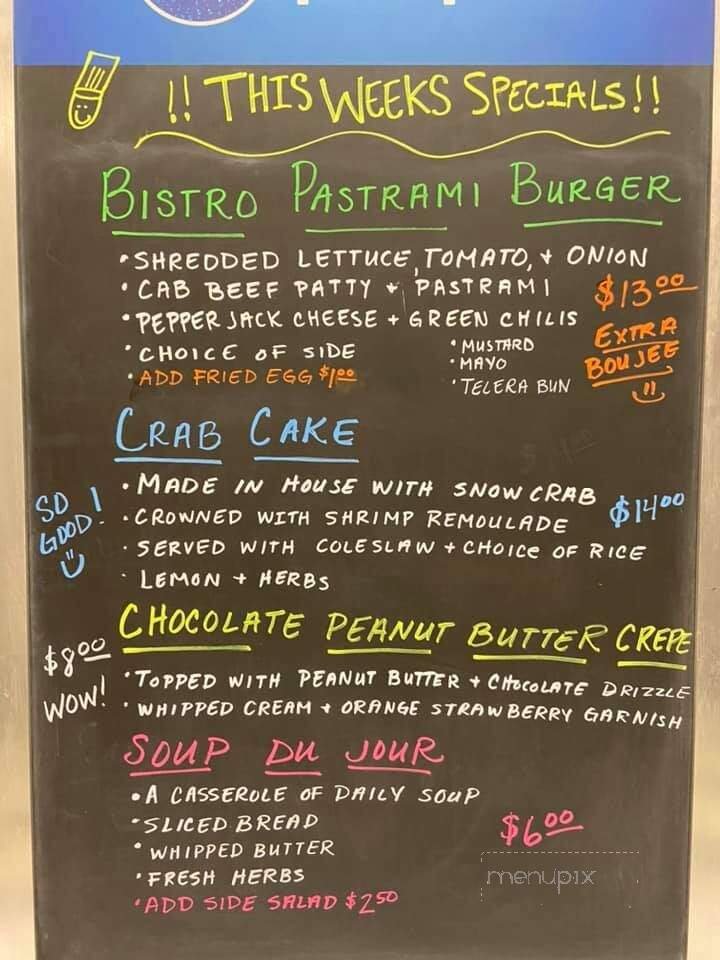 !! THIS WEEKS SPECIALS!!
BISTRO PASTRAMI BURGER
• SHREDDED LETTUCE, TOMATO, + ONION
• CAB BEEF PATTY + PASTRAMI
$13.00
• PEPPER JACK CHEESE + GREEN CHILIS
EXTRA
BOUJEE
• CHOICE OF SIDE
• ADD FRIED EGG $1.00
• MUSTARD
• MAYO
• TELERA BUN
CRAB CAKE
• MADE IN HOUSE WITH SNOW CRAB
$14.00
SO
GOOD!
• CROWNED WITH SHRIMP REMOULADE
• SERVED WITH COLESLAW + CHOICE OF RICE
• LEMON + HERBS
CHOCOLATE PEANUT BUTTER CREPE
$8.00
WOW!
• TOPPED WITH PEANUT BUTTER + CHOCOLATE DRIZZLE
• WHIPPED CREAM + ORANGE STRAWBERRY GARNISH
SOUP DU JOUR
• A CASSEROLE OF DAILY SOUP
• SLICED BREAD
$6.00
• WHIPPED BUTTER
• FRESH HERBS
• ADD SIDE SALAD $2.50
menupix